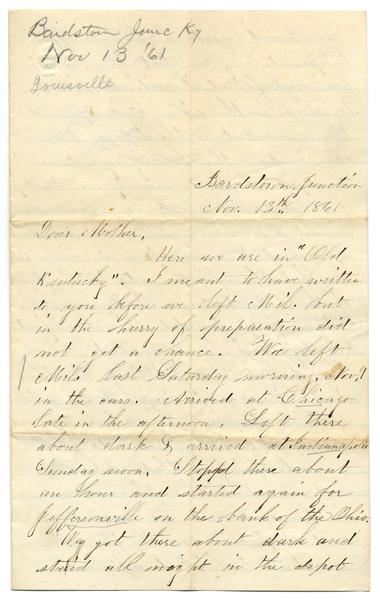 Bardstown Junc Ky
Nov 13 '61
Louisville
Bardstown Junction
Nov. 13th 1861
Dear Mother,
Here we are in "Old
Kentucky". I meant to have written
to you before we left Mil. but
in the hurry of preparation did
not get a chance. We left
Mil. last Saturday morning, Nov. 9
in the cars. Arrived at Chicago
late in the afternoon. Left there
about dark & arrived at Indianapolis
Sunday noon. Stoppd there about
an hour and started again for
Jeffersonville on the bank of the Ohio.
We got there about dark and
staid all night in the depot